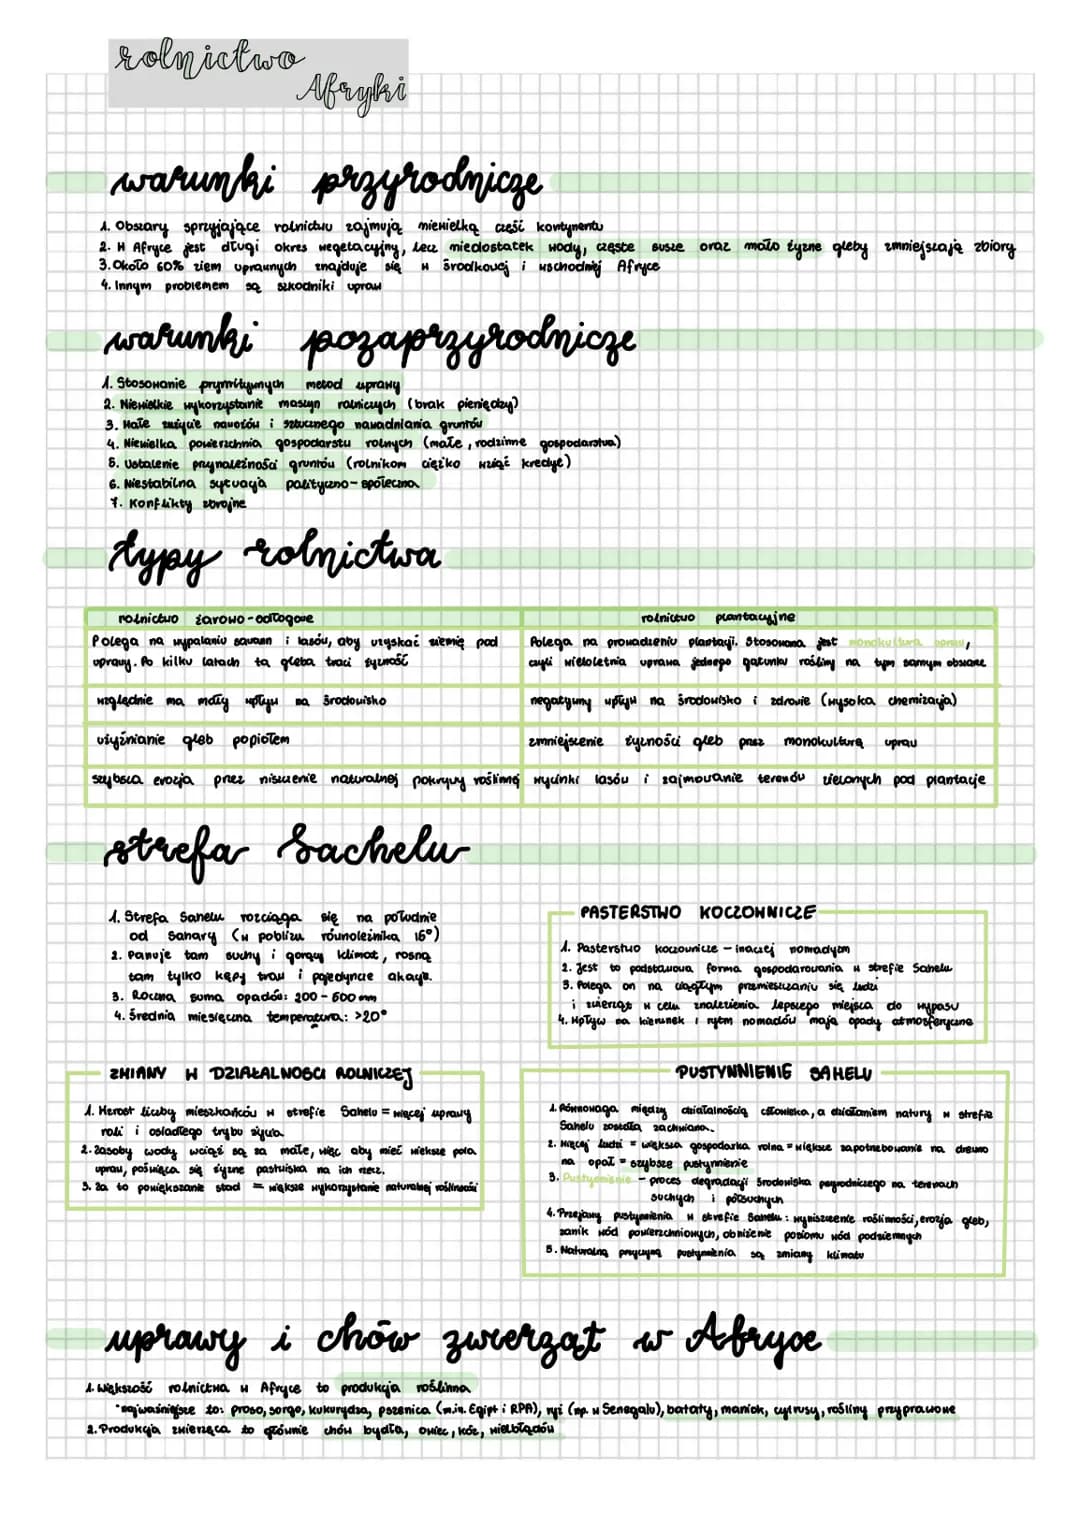 rolnictwo
Afryki
warunki przyrodnicze
1. Obszary sprzyjające rolnictwu zajmują niewielką cześć kontynentu
2. W Afryce jest długi okres wegetacyjny, lecz niedostatek wody, częste susze oraz mało żyzne gleby zmniejszają zbiory
3. Około 60% ziem uprawnych znajduje się w środkowej i wschodniej Afryce
4. Innym problemem są szkodniki upraw
warunki pozaprzyrodnicze
1. Stosowanie prymitywnych metod uprawy
2. Niewielkie wykorzystanie maszyn rolniczych (brak pieniędzy)
3. Małe zużycie nawozów i sztucznego nawadniania gruntów
4. Niewielka powierzchnia gospodarstw rolnych (małe, rodzinne gospodarstwa)
5. Ustalenie przynależności gruntów (rolnikom ciężko wziąć kredyt)
6. Niestabilna sytuacja polityczno-społeczna
7. Konflikty zbrojne
typy rolnictwa
rolnictwo żarowo-odłogowe
Polega na wypalaniu sawann i lasów, aby uzyskać ziemię pod
uprawy. Po kilku latach ta gleba traci żyzność
względnie ma mały wpływ na środowisko
użyźnianie gleb popiołem
szybsza erozja przez niszczenie naturalnej pokrywy roślinnej
rolnictwo plantacyjne
Polega na prowadzeniu plantacji. Stosowana jest monokultura upraw,
czyli wieloletnia uprawa jednego gatunku rośliny na tym samym obszarze
negatywny wpływ na środowisko i zdrowie (wysoka chemizacja)
zmniejszenie żyzności gleb przez monokulturę upraw
wycinki lasów i zajmowanie terenów zielonych pod plantacje
strefa Sachelu
1. Strefa Sahelu rozciąga się na południe
od Sahary (w pobliżu równoleżnika 16°)
2. Panuje tam suchy i gorący klimat, rosną
tam tylko kępy traw i pojedyncze akacje.
3. Roczna suma opadów: 200-600 mm
4. Średnia miesięczna temperatura: >20°
PASTERSTWO KOCZOWNICZE
1. Pasterstwo koczownicze - inaczej nomadyzm
2. Jest to podstawowa forma gospodarowania w strefie Sahelu
3. Polega on na ciągłym przemieszczaniu się ludzi
i zwierząt w celu znalezienia lepszego miejsca do wypasu
4. Wpływ na kierunek i rytm nomadów mają opady atmosferyczne
ZMIANY W DZIAŁALNOŚCI ROLNICZEJ
1. Wzrost liczby mieszkańców w strefie Sahelu = więcej uprawy
roli i osiadłego trybu życia
2. Zasoby wody wciąż są za małe, więc aby mieć większe pola
upraw, poświęca się żyzne pastwiska na ich rzecz.
3. Za to powiększanie stad = większe wykorzystanie naturalnej roślinności
PUSTYNNIENIE SAHELU
1. Równowaga między działalnością człowieka, a działaniem natury w strefie
Sahelu została zachwiana.
2. Więcej ludzi = większa gospodarka rolna = większe zapotrzebowanie na drewno
na opał = szybsze pustynnienie
3. Pustynnienie - proces degradacji środowiska przyrodniczego na terenach
suchych i półsuchych
4. Przejawy pustynnienia w strefie Sahelu: wyniszczenie roślinności, erozja gleb,
zanik wód powierzchniowych, obniżenie poziomu wód podziemnych
5. Naturalną przyczyną pustynnienia są zmiany klimatu
uprawy i chów zwierząt w Afryce
1. Większość rolnictwa w Afryce to produkcja roślinna
•najważniejsze to: proso, sorgo, kukurydza, pszenica (m.in. Egipt i RPA), ryż (np. w Senegalu), bataty, maniok, cytrusy, rośliny przyprawowe
2. Produkcja zwierzęca to głównie chów bydła, owiec, kóz, wielbłądów